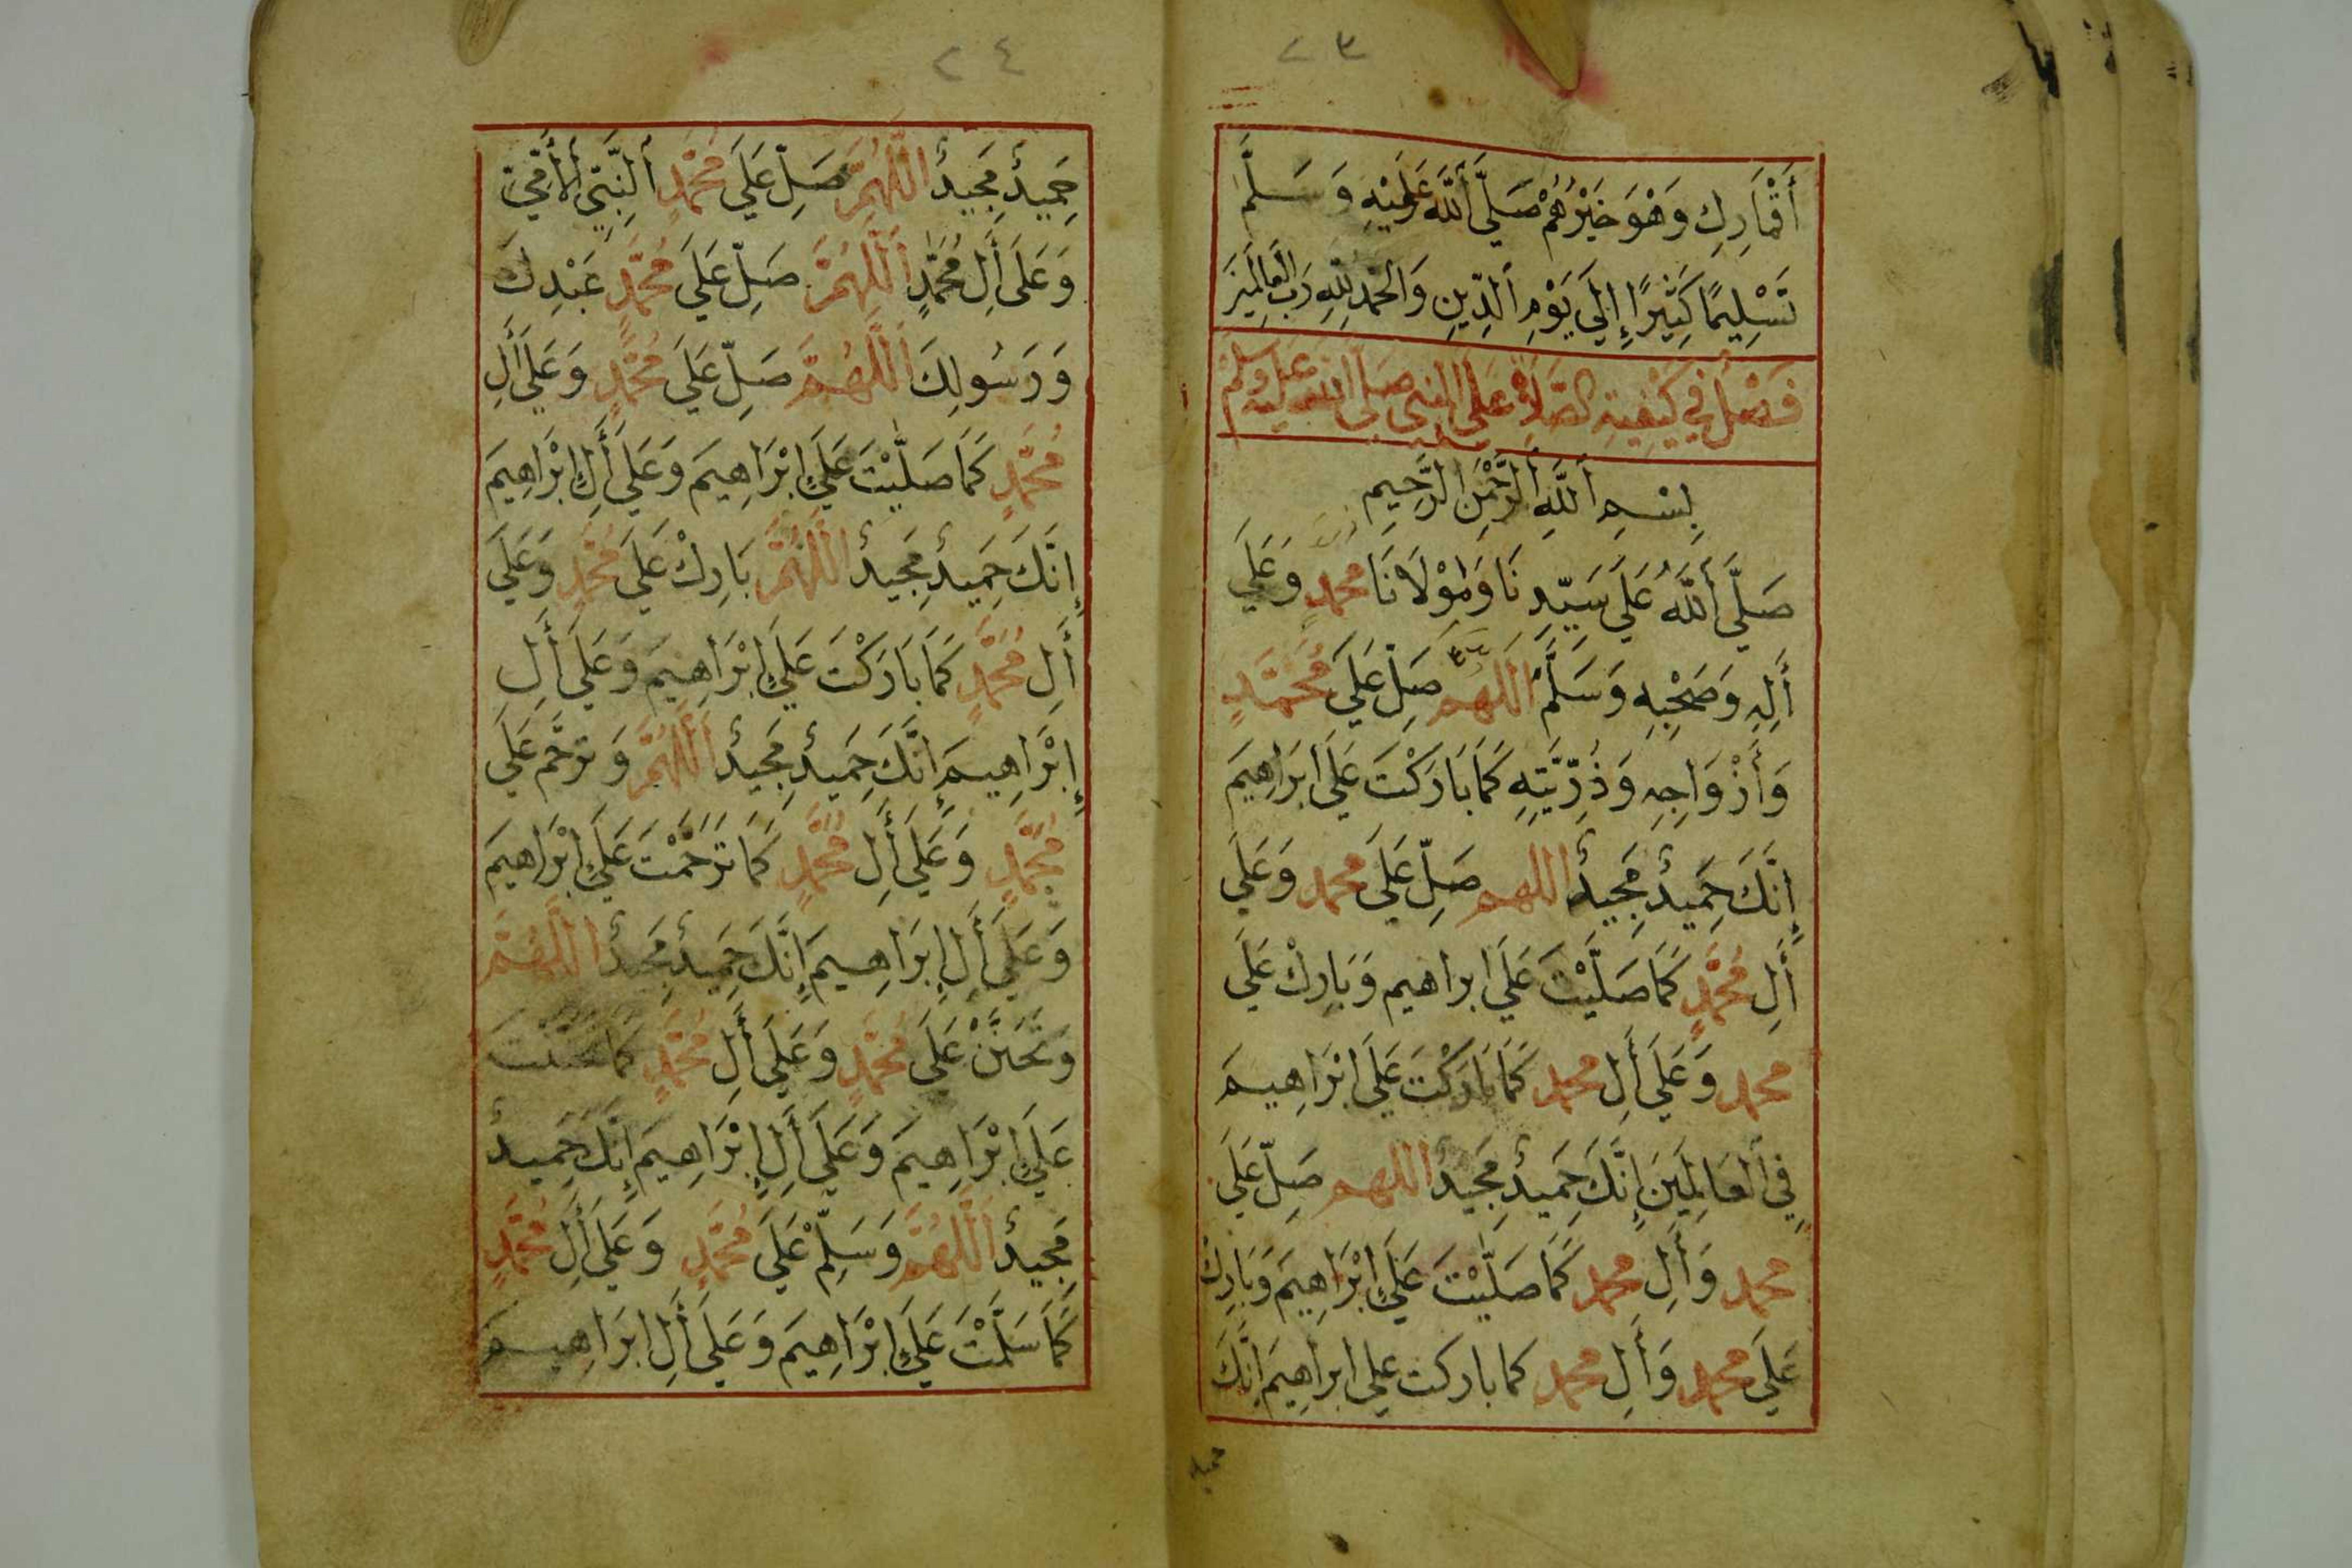 ٢٣
أَقْمَارِكِ وَهْوَ خَيْرُهُمْ صَلَّى اَللَّهُ عَلَيْهِ وَسَلَّمَ
تَسْلِيمًا كَثِيرًا إِلَى يَوْمِ اَلدِّينِ وَالْحَمْدُ لِلَّهِ رَبِّ الْعَالَمِينَ
فَصْلٌ فِي كَيْفِيَّةِ الصَّلَاةِ عَلَى النبي صَلَّى الله عَلَيْهِ وَسَلَّمَ
بِسْمِ اَللَّهِ اَلرَّحْمَنِ الرَّحِيمِ
صَلَّى اَللَّهُ عَلَى سَيِّدِنَا وَمَوْلَانَا محمدٍ وَعَلَى
أَلِهِ وَصَحْبِهِ وَسَلَّمَ اَللهم صَلِّ عَلَى مُحَمَّدٍ
وَأَزْوَاجِهِ وَذُرِّيَّتِهِ كَمَا بَارَكْتَ عَلَى ابْرَاهِيمَ
إِنَّكَ حَمِيدٌ مَجِيدٌ اللهم صَلِّ عَلَى محمد وَعَلَى
أَلِ مُحَمَّدٍ كَمَا صَلَّيْتَ عَلَى ابراهيم وَبَارِكْ عَلَى
محمد وَعَلَى أَلِ محمد كَمَا بَارَكْتَ عَلَى ابْرَاهِيمَ
فِي اَلْعَالَمِينَ إِنَّكَ حَمِيدٌ مَجِيدٌ اللهم صَلِّ عَلَى
محمد وَأَلِ محمد كَمَا صَلَّيْتَ عَلَى إِبْرَاهِيمَ وَبَارِكْ
عَلَى محمد وَأَلِ محمد كما باركت على ابراهِيمَ إِنَّكَ
حميد
٢٤
حَمِيدٌ مَجِيدٌ اللَّهُمَّ صَلِّ عَلَى مُحَمَّدٍ اَلنَّبِيِّ اَلْأُمِّيِّ
وَعَلَى أَلِ مُحَمَّدٍ اَللَّهُمَّ صَلِّ عَلَى مُحَمَّدٍ عَبْدِكَ
وَرَسُولِكَ اَللَّهُمَّ صَلِّ عَلَى مُحَمَّدٍ وَعَلَى أَلِ
مُحَمَّدٍ كَمَا صَلَّيْتَ عَلَى إِبْرَاهِيمَ وَعَلَى أَلِ إِبْرَاهِيمَ
إِنَّكَ حَمِيدٌ مَجِيدٌ اللَّهُمَّ بَارِكْ عَلَى مُحَمَّدٍ وَعَلَى
أَلِ مُحَمَّدٍ كَمَا بَارَكْتَ عَلَى إِبْرَاهِيمَ وَعَلَى أَلِ
إِبْرَاهِيمَ إِنَّكَ حَمِيدٌ مَجِيدٌ اَللَّهُمَّ وَتَرَحَّمْ عَلَى
مُحَمَّدٍ وَعَلَى أَلِ مُحَمَّدٍ كَمَا تَرَحَّمْتَ عَلَى إِبْرَاهِيمَ
وَعَلَى أَلِ إِبْرَاهِيمَ إِنَّكَ حَمِيدٌ مَجِيدٌ اللَّهُمَّ
وَتَحَنَّنْ عَلَى مُحَمَّدٍ وَعَلَى أَلِ مُحَمَّدٍ كَمَا تَحَنَّنْتَ
عَلَى إِبْرَاهِيمَ وَعَلَى أَلِ إِبْرَاهِيمَ إِنَّكَ حَمِيدٌ
مَجِيدٌ اَللَّهُمَّ وَسَلِّمْ عَلَى مُحَمَّدٍ وَعَلَى أَلِ مُحَمَّدٍ
كَمَا سَلَّمْتَ عَلَى إِبْرَاهِيمَ وَعَلَى أَلِ ابْرَاهِيمَ